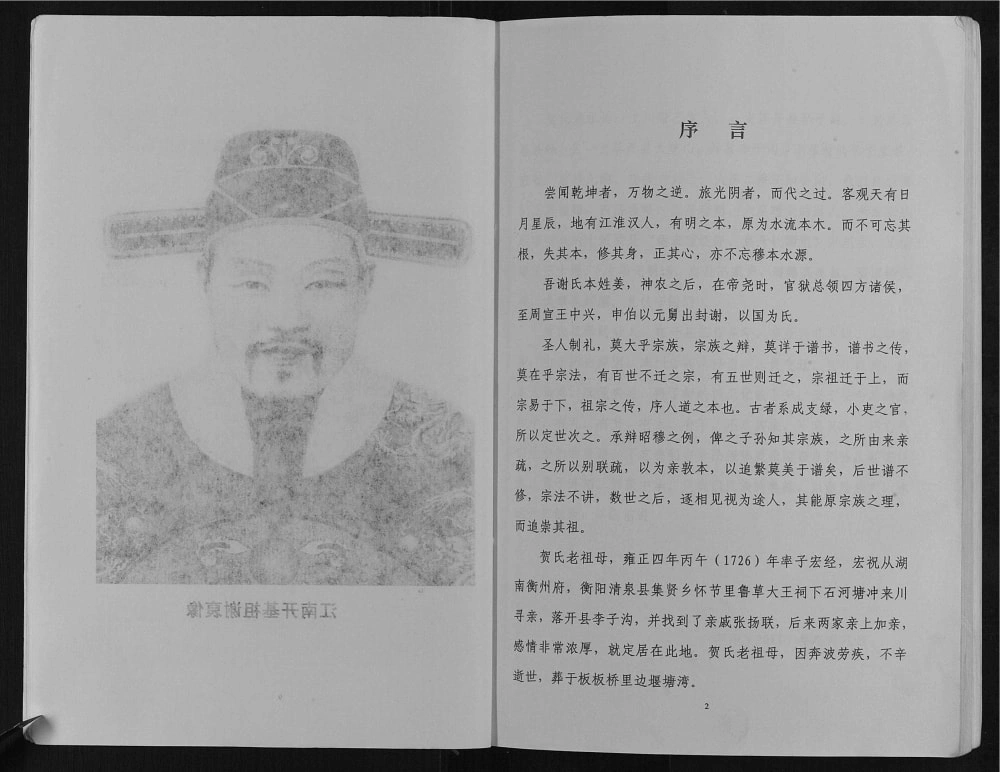 江南开基祖谢衰像
序 言
尝闻乾坤者，万物之逆。旅光阴者，而代之过。客观天有日
月星辰，地有江淮汉人，有明之本，原为水流本木。而不可忘其
根，失其本，修其身，正其心，亦不忘穆本水源。
吾谢氏本姓姜，神农之后，在帝尧时，官狱总领四方诸侯，
至周宣王中兴，申伯以元舅出封谢，以国为氏。
圣人制礼，莫大乎宗族，宗族之辩，莫详于谱书，谱书之传，
莫在乎宗法，有百世不迁之宗，有五世则迁之，宗祖迁于上，而
宗易于下，祖宗之传，序人道之本也。古者系成支绿，小吏之官，
所以定世次之。承辩昭穆之例，俾之子孙知其宗族，之所由来亲
疏，之所以别联疏，以为亲敦本，以追繁莫美于谱矣，后世谱不
修，宗法不讲，数世之后，逐相见视为途人，其能原宗族之理，
而追崇其祖。
贺氏老祖母，雍正四年丙午（1726）年率子宏经，宏祝从湖
南衡州府，衡阳清泉县集贤乡怀节里鲁草大王祠下石河塘冲来川
寻亲，落开县李子沟，并找到了亲戚张扬联，后来两家亲上加亲，
感情非常浓厚，就定居在此地。贺氏老祖母，因奔波劳疾，不辛
逝世，葬于板板桥里边堰塘湾。
2